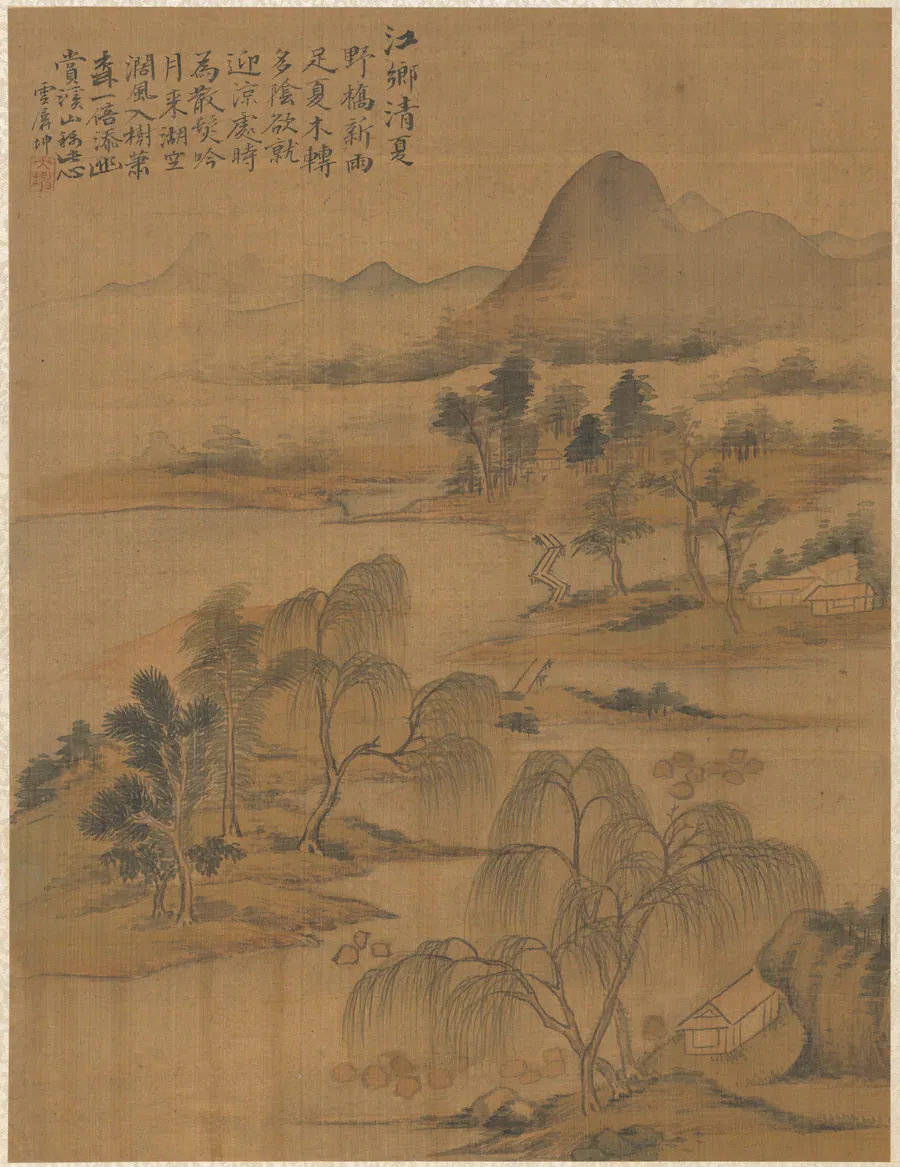 江鄉清夏
野橋新雨
足夏木轉
多陰欲就
迎涼處時
為散髮吟
月来湖空
濶風入樹蕭
森一倍添幽
賞溪山稱此心
雲屏坤